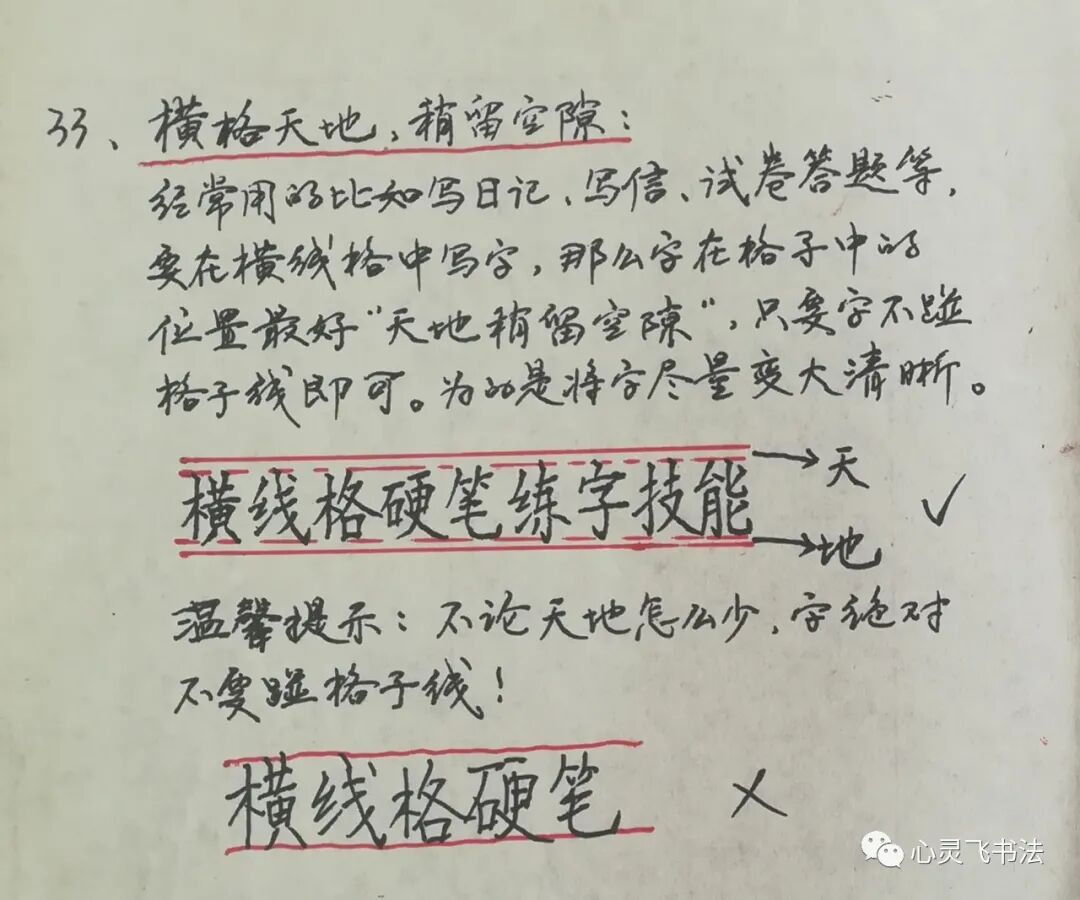 33、横格天地，稍留空隙：
经常用的比如写日记、写信、试卷答题等，
要在横线格中写字，那么字在格子中的
位置最好“天地稍留空隙”，只要字不碰
格子线即可。为的是将字尽量变大清晰。
横线格硬笔练字技能
天
地
✓
温馨提示：不论天地怎么少，字绝对
不要碰格子线！
横线格硬笔
×
心灵飞书法